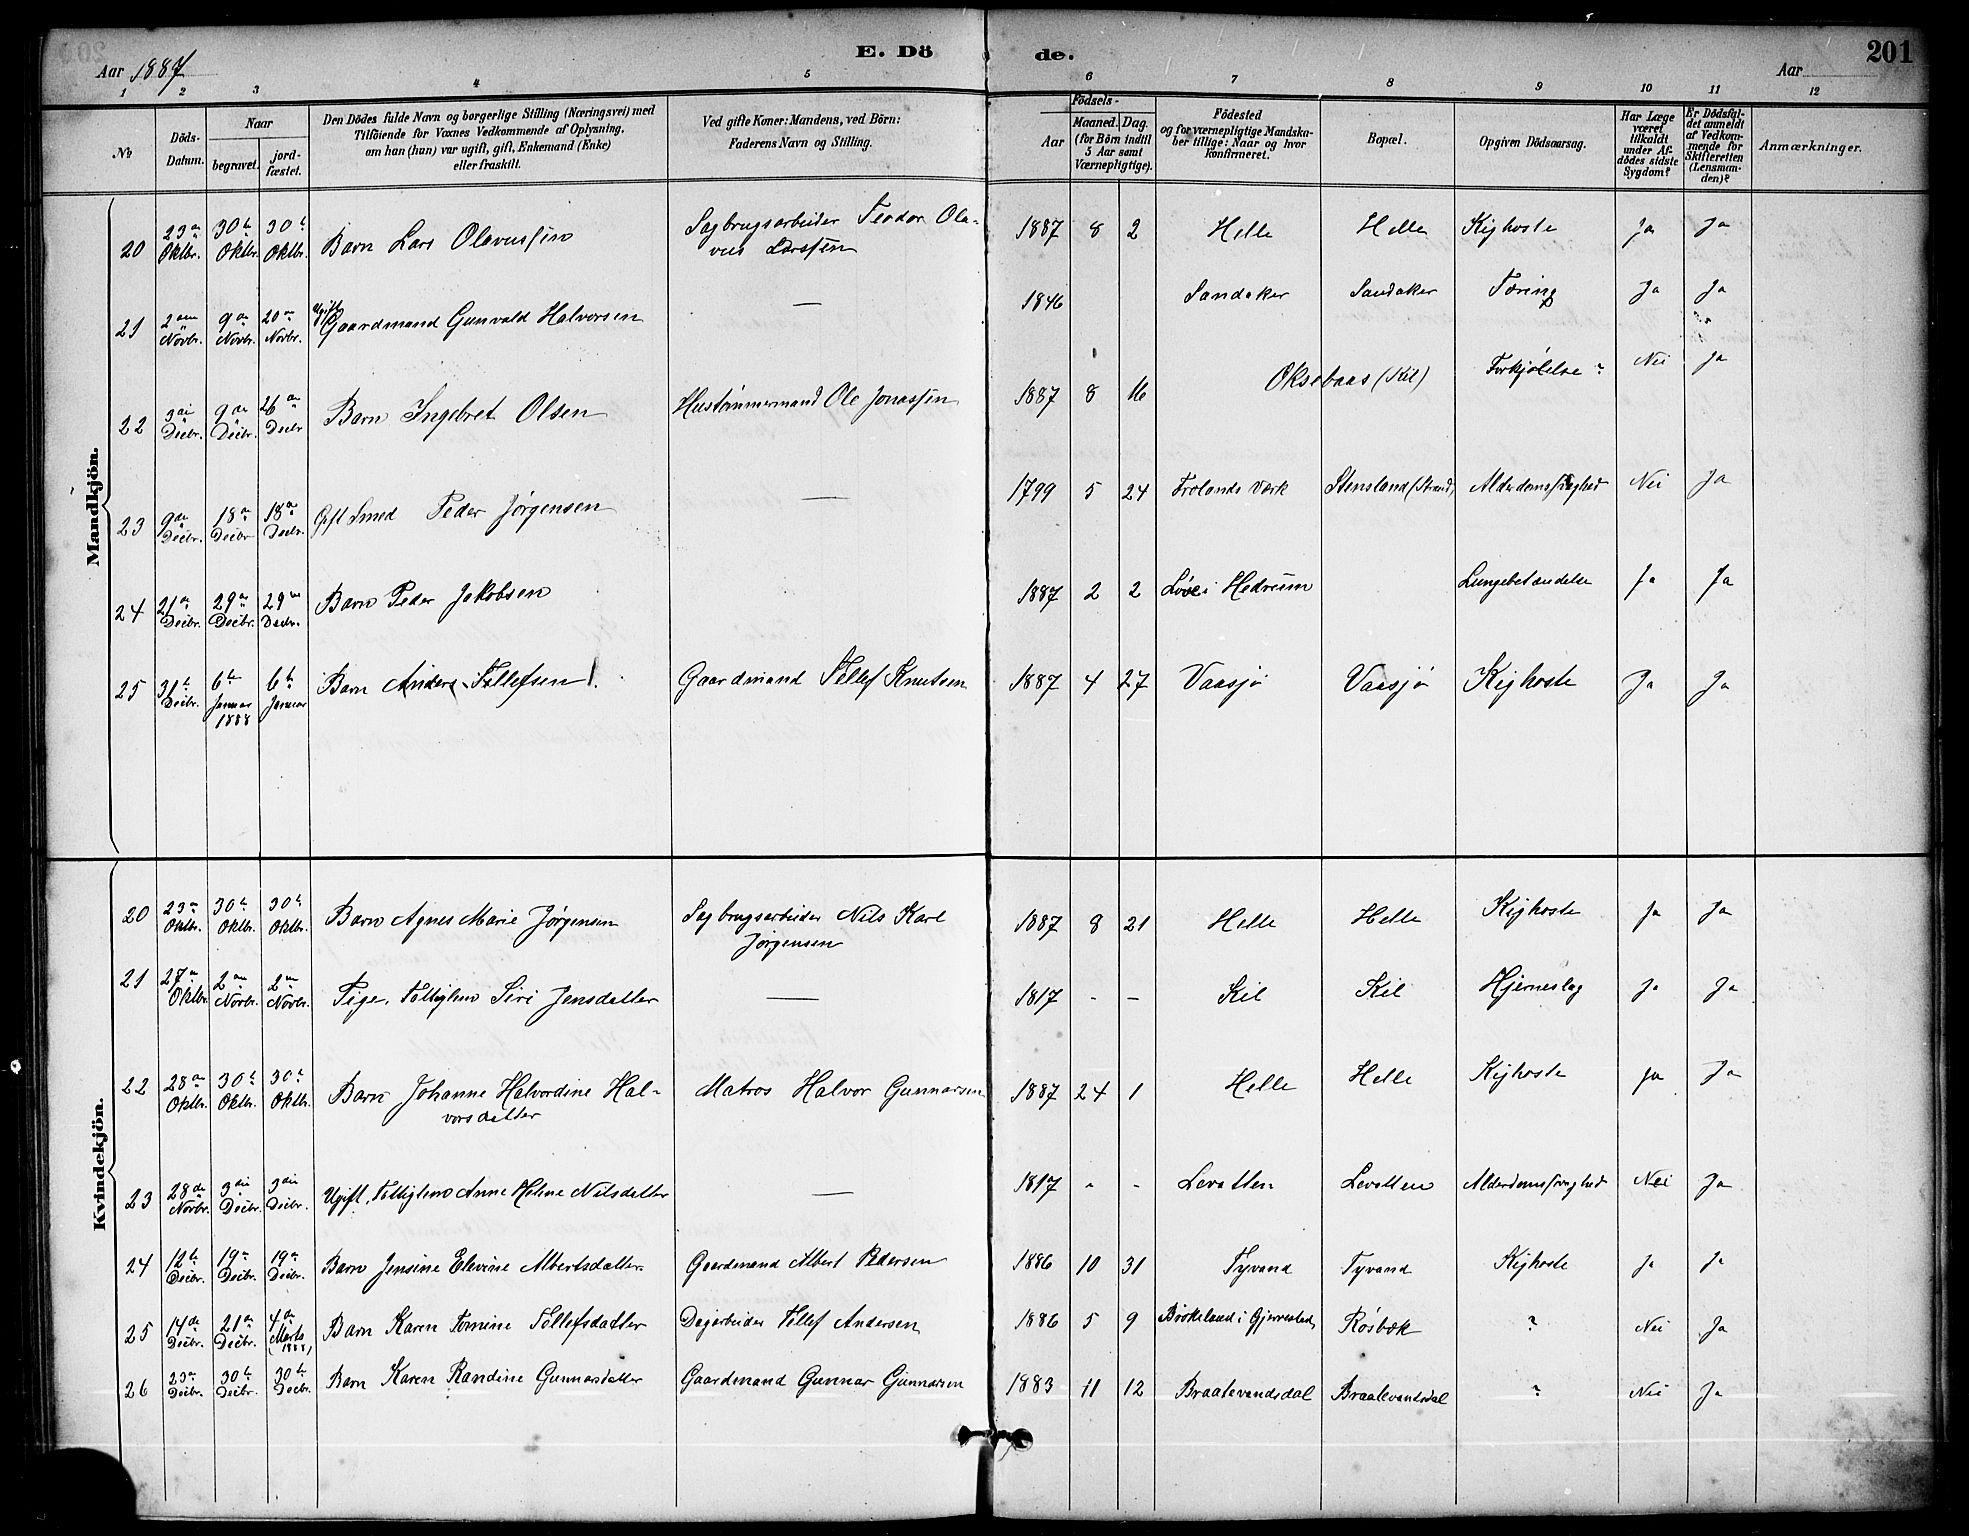 Aar 1887
E. Dö
de.
Aar
201
1 2 3 4 5 6 7 8 9 10 11 12
№
Döds-
Datum.
Naar
begravet.
jord-
fæstet.
Den Dödes fulde Navn og borgerlige Stilling (Næringsvei) med
Tilföiende for Voxnes Vedkommende af Oplysning,
om han (hun) var ugift, gift, Enkemand (Enke)
eller fraskilt.
Ved gifte Koner: Mandens, ved Börn:
Faderens Navn og Stilling.
Födsels-
Aar
Maaned.
Dag
(for Börn indtil
5 Aar samt
Værnepligtige).
Födested
og for værnepligtige Mandska-
ber tillige: Naar og hvor
konfirmeret.
Bopæl.
Opgiven Dödsaarsag.
Har Læge
været
tilkaldt
under Af-
dödes sidste
Sygdom?
Er Dödsfal-
det anmeldt
af Vedkom-
mende for
Skifteretten
(Lensman-
den)?
Anmærkninger.
Mandkjön.
20 23de Oktbr. 30te Oktbr. 30te Oktbr. Barn Lars Olavussen Sagbrugsarbeider Teodor Ola-
vus Larssen 1887 8 2 Helle Helle Kighoste Ja Ja
21 2den Novbr. 9de Novbr. 20de Novbr. Ugift Gaardmand Gunvald Halvorsen — 1846 Sandaker Sandaker Tæring Ja Ja
22 3die Decbr. 9de Decbr. 26de Decbr Barn Ingebret Olsen Hustømmermand Ole Jonassen 1887 8 16 Oksebaas (Kil) Forkjølelse ? Nei Ja
23 9de Decbr. 18de Decbr 18de Decbr. Gift Smed Peder Jørgensen — 1799 5 24 Frolands Værk Stensland (Strand) Alderdomssvaghed Nei Ja
24 21de Decbr. 29de Decbr. 29de Decbr. Barn Peder Jakobsen 1887 2 2 Løve i Hedrum Lungebetændelse Ja Ja
25 31te Decbr. 6te Januar 1888 6te Januar Barn Anders Tellefsen Gaardmand Tellef Knutsen 1887 4 27 Vaasjø Vaasjø Kighoste Ja Ja
Kvindekjön.
20 23de Oktbr. 30te Oktbr. 30te Oktbr. Barn Agnes Marie Jørgensen Sagbrugsarbeider Nils Karl
Jørgensen 1887 8 21 Helle Helle Kighoste Ja Ja
21 27de Oktbr 2den Novbr. 2den Novbr. Pige, Fattiglem Siri Jensdatter — 1817 - - Kil Kil Hjerneslag Ja Ja
22 28de Oktbr. 30te Oktbr. 30te Oktbr. Barn Johanne Halvordine Hal-
vorsdatter Matros Halvor Gunnarsen 1887 24 1 Helle Helle Kighoste Ja Ja
23 28de Novbr. 3die Decbr. 3die Decbr. Ugift, Fattiglem Anne Helene Nilsdatter — 1817 - - Levatten Levatten Alderdomssvaghed Nei Ja
24 12te Decbr. 19de Decbr. 19de Decbr. Barn Jensine Elevine Albertsdatter Gaardmand Albert Pedersen 1886 10 31 Tyvand Tyvand Kighoste Ja Ja
25 14de Decbr. 21de Decbr. 4de Marts (1888) Barn Karen Tomine Tellefsdatter Dagarbeider Tellef Andersen 1886 5 9 Brøkeland i Gjerrestad Røsbæk ? Nei Ja
26 23de Decbr. 30te Decbr. 30te Decbr. Barn Karen Randine Gunnarsdatter Gaardmand Gunnar Gunnarsen 1883 11 12 Braatevandsdal Braatevandsdal ? Nei Ja